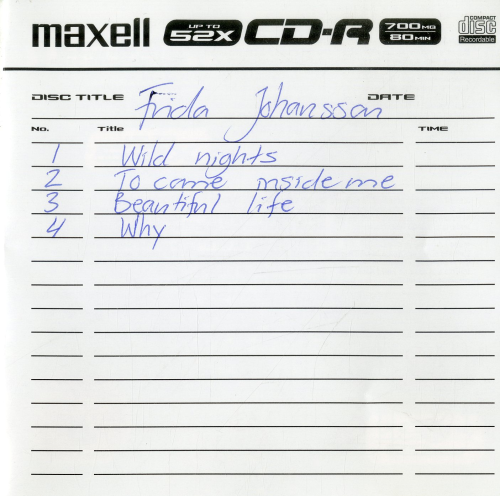 maxell UP TO 52X CD-R 700MB 80MIN COMPACT disc Recordable
DISC TITLE Frida Johansson DATE
No. Title TIME
1 Wild nights
2 To come inside me
3 Beautiful life
4 Why